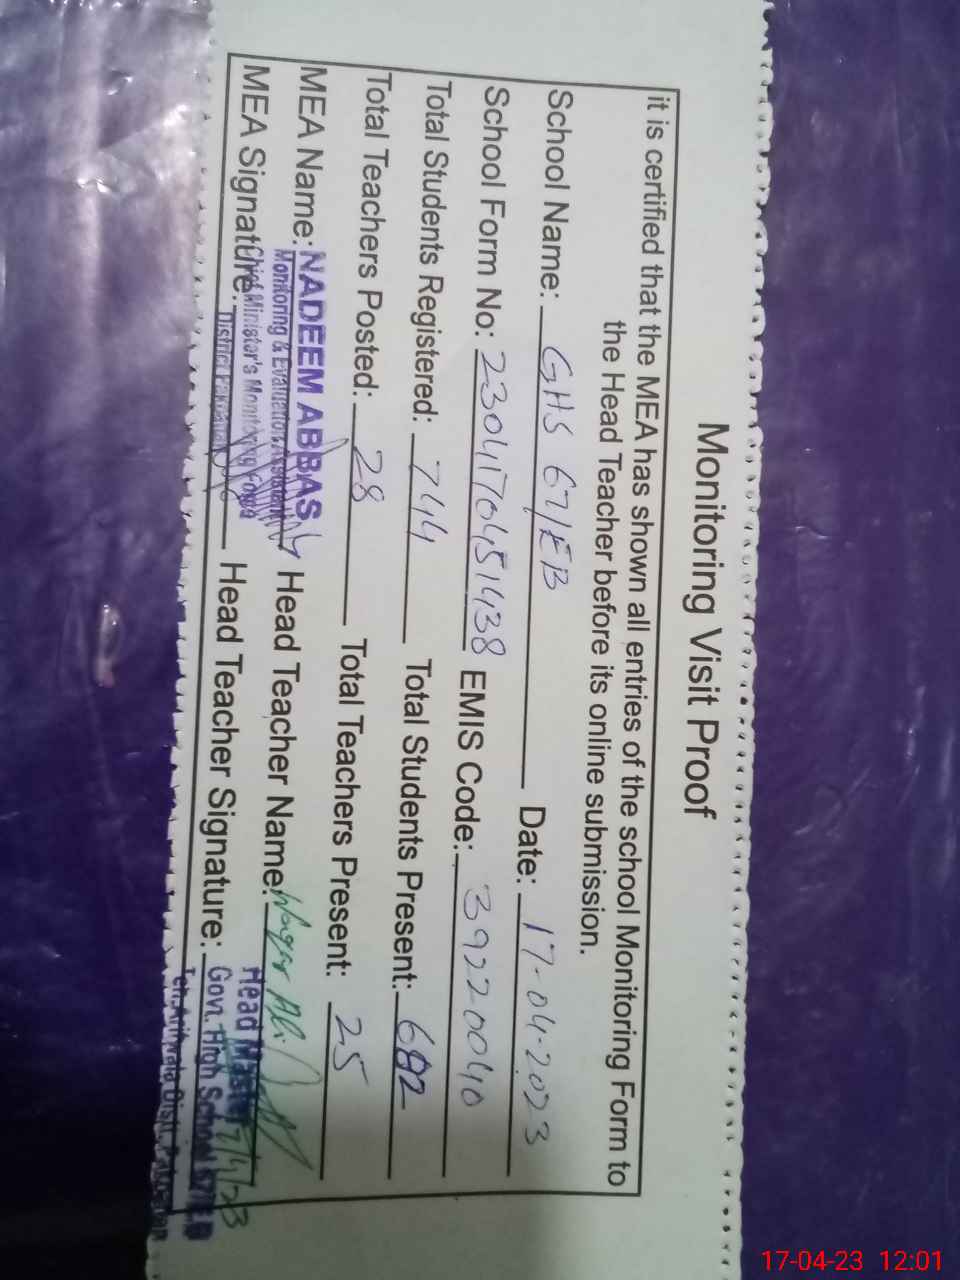 Monitoring Visit Proof
it is certified that the MEA has shown all entries of the school Monitoring Form to
the Head Teacher before its online submission.
School Name: GHS 67/EB Date: 17-04-2023
School Form No: 2304170451438 EMIS Code: 39220040
Total Students Registered: 744 Total Students Present: 682
Total Teachers Posted: 28 Total Teachers Present: 25
MEA Name: NADEEM ABBAS Head Teacher Name: Waqar Ali
Monitoring & Evaluation Assistant
MEA Signature: Head Teacher Signature:
Chief Minister's Monitoring Force
District Pakpattan
Head Master
Govt. High School 67/EB
Teh. Arifwala Distt. Pakpattan
17/4/23
17-04-23 12:01